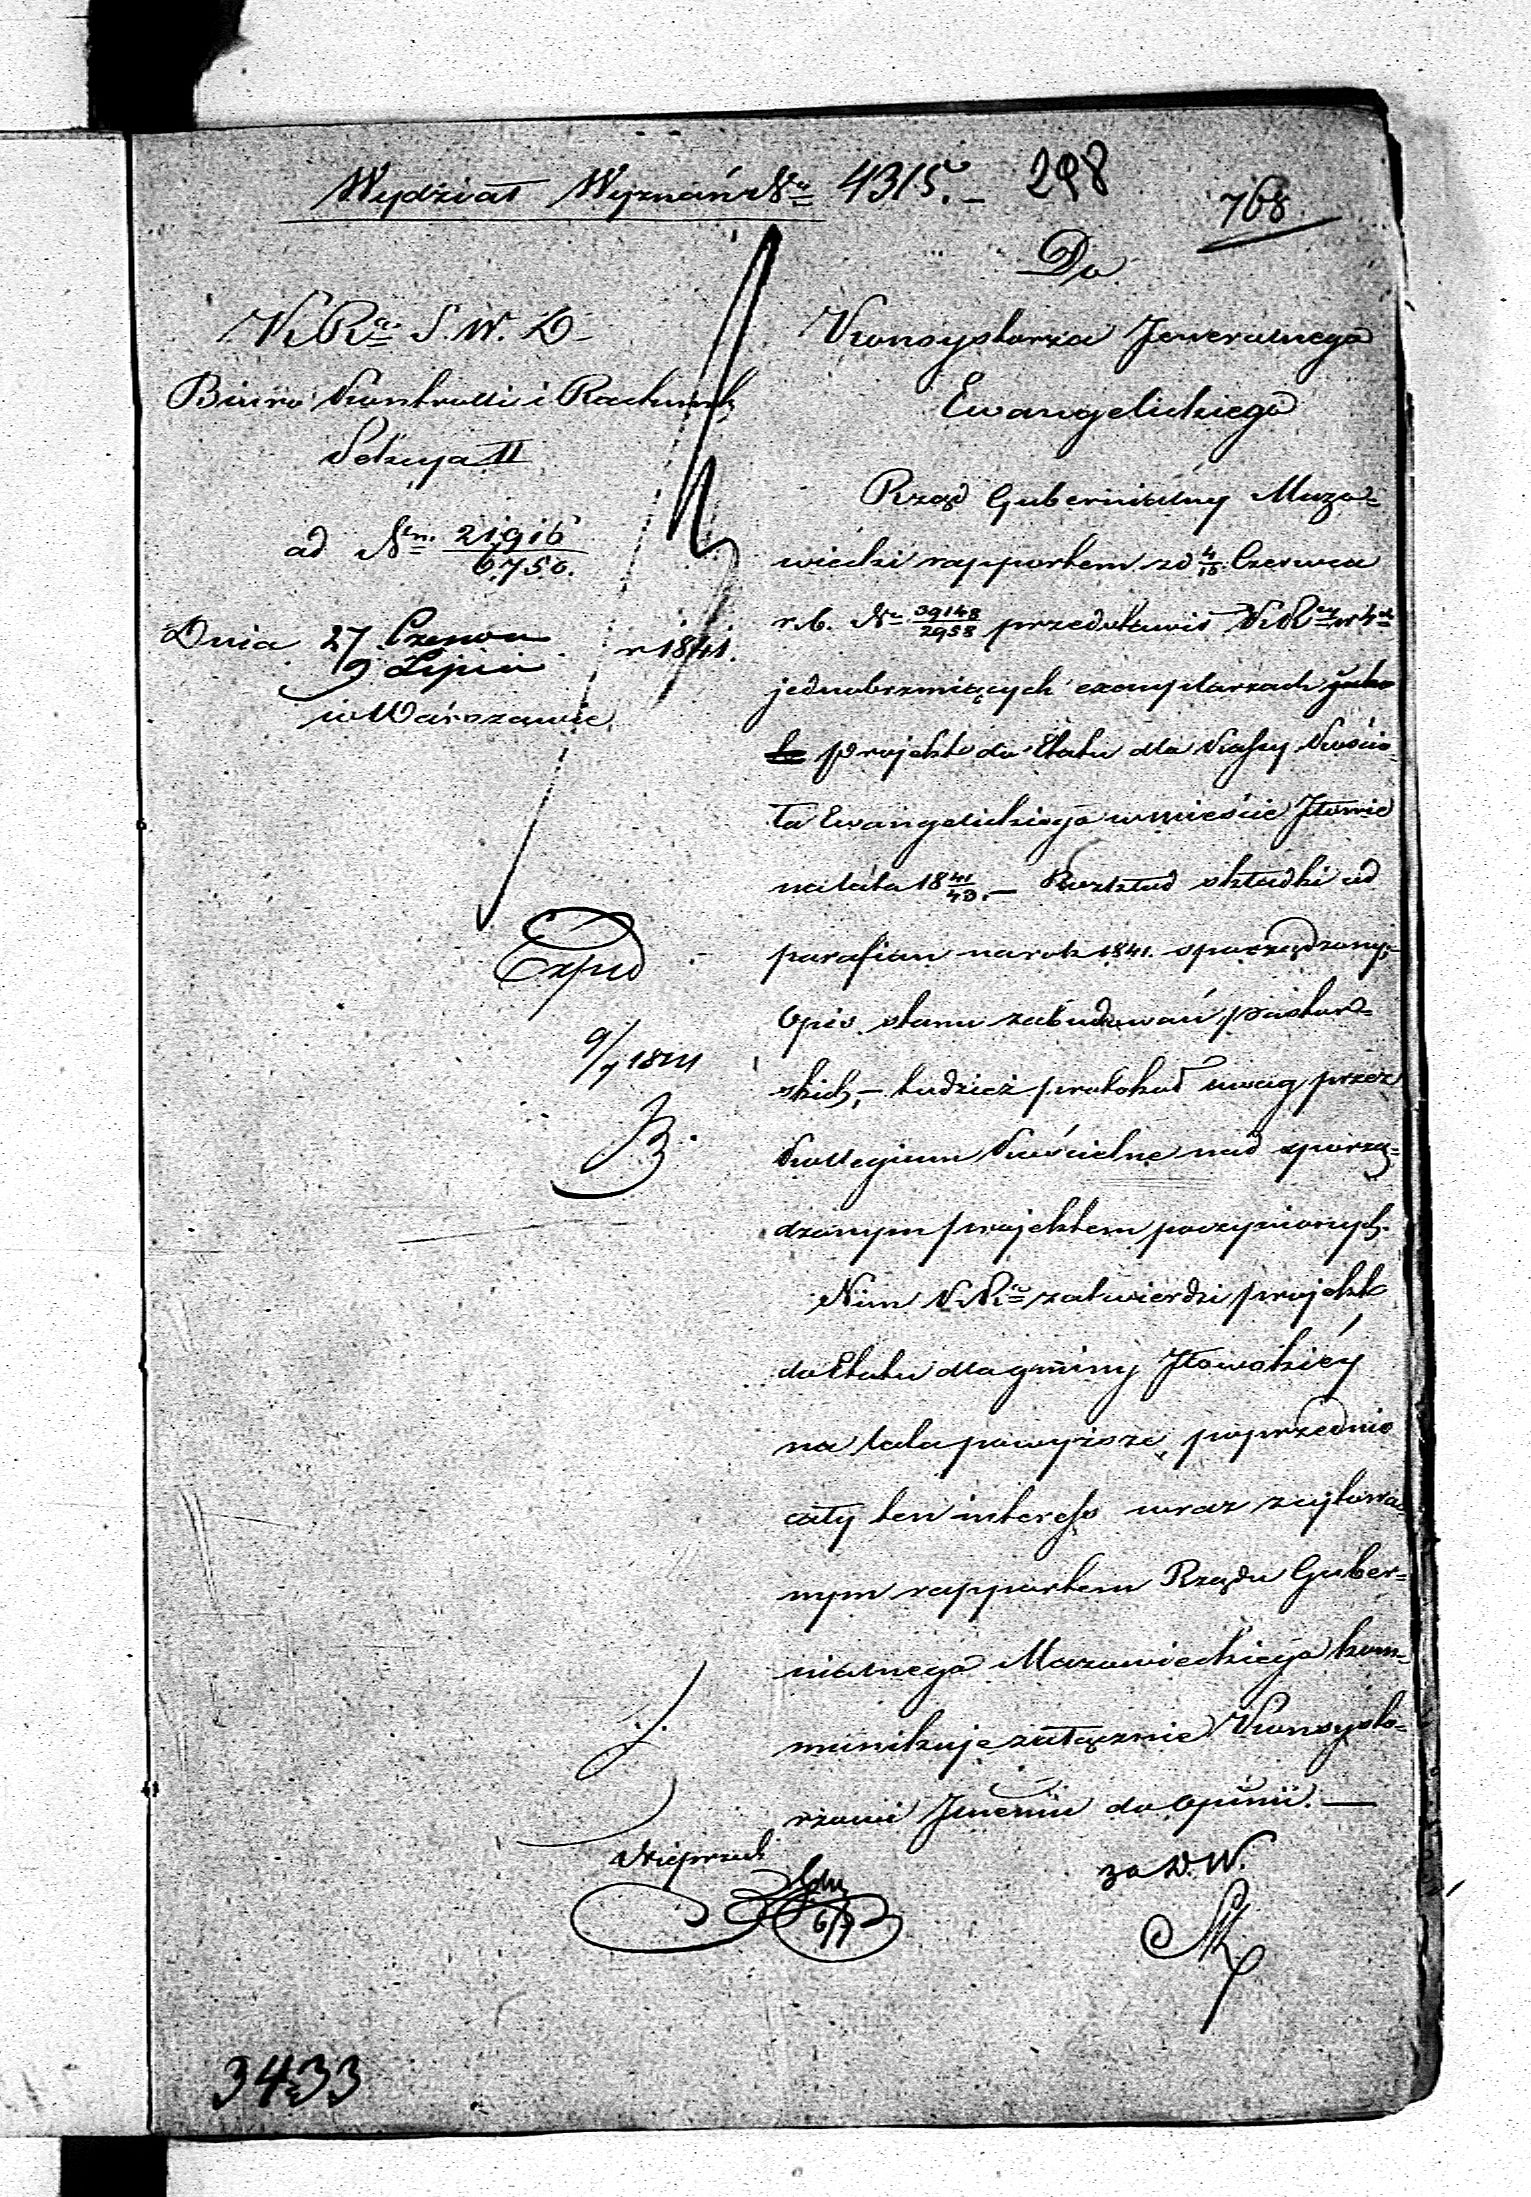 Wydział Wyznań Nr 4315. – 298
768
Do
K. R. S. W. D.
Biuro Kontrolli i Rachunk
Sekcya II
ad Nrm. 21916/6750.
Dnia 27 Czerwca / 9 Lipca r 1841.
w Warszawie
Expd
9/7 1841
Konsystorza Jeneralnego
Ewangelickiego
Rząd Gubernialny Mazo=
wiecki rapportem z d 4/15 Czerwca
r. b. Nr 39148/2958 przedstawił K. R.
jednobrzmiących exemplarzach
projekt do Etatu dla Kassy Kościo=
ła Ewangelickiego w mieście Iłowie
na lata 18 41/43. – Rozkład składki od
parafian na rok 1841. sporządzony;
Opis stanu zabudowań pastor=
skich, – tudzież protokół uwag przez
Kollegium Kościelne nad sporzą=
dzonym projektem poczynionych.
Nim K. R. zatwierdzi projekt
do Etatu dla gminy Iłowskiéy
na lata powyższe, poprzednio
cały ten interess wraz z cytowa=
nym rapportem Rządu Guber=
nialnego Mazowieckiego kom=
munikuje załącznie Konsysto=
rzowi Jnemu do Opinii. –
za D. W.
6/7
3433